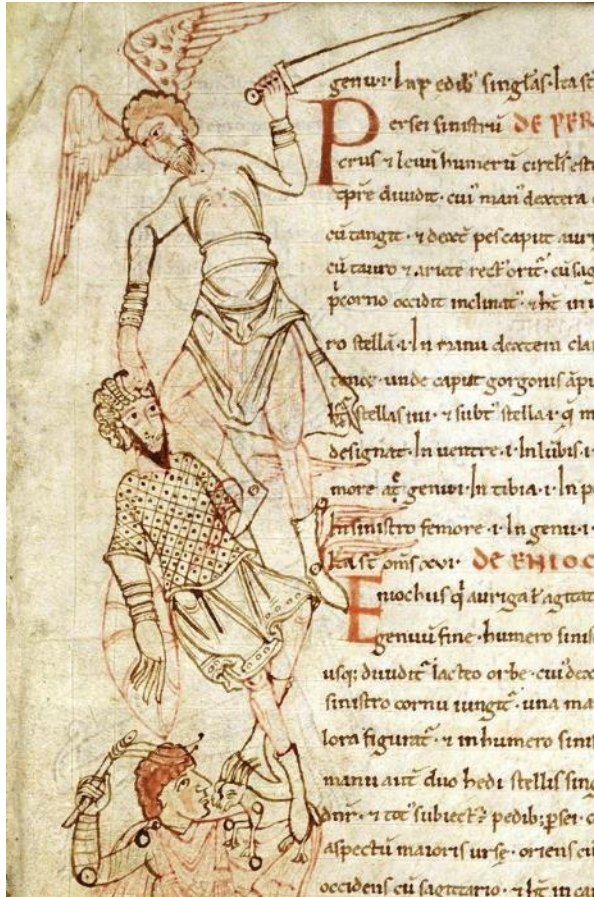 genu·i· In pedib' singlas· Ita st̄
Persei sinistrū DE PER
crus ⁊ leuū humerū circl's esti
cūtangit· ⁊ dext̄ pes caput auri
cū tauro ⁊ ariete rect' orit̄· cū sag
p̄corno occidit inclinat' ⁊ ht̄ in
ro stellā·i· In manu dextera clar
tenet· unde caput gorgonis
stellas iiii· ⁊ subt' stella·i· q
designat· In uentre·i· In lūbis·i·
more at genu·i· In tibia·i· In p
In sinistro femore·i· In genu·i·
Ita st̄ om̄s xvi· DE ENIOC
Eniochus q̄ auriga ł agitat
genuū fine· humero sinis
usq; diuidit̄ lacteo orbe· cui' dex
sinistro cornu iungit̄· una ma
lora figurat̄· ⁊ in humero sini
manu aut̄ duo hedi stellis sing
subiect' pedib; psei·
aspectū maioris urse· oriens cū
occidens cū sagittario· ⁊ ht̄ in ca